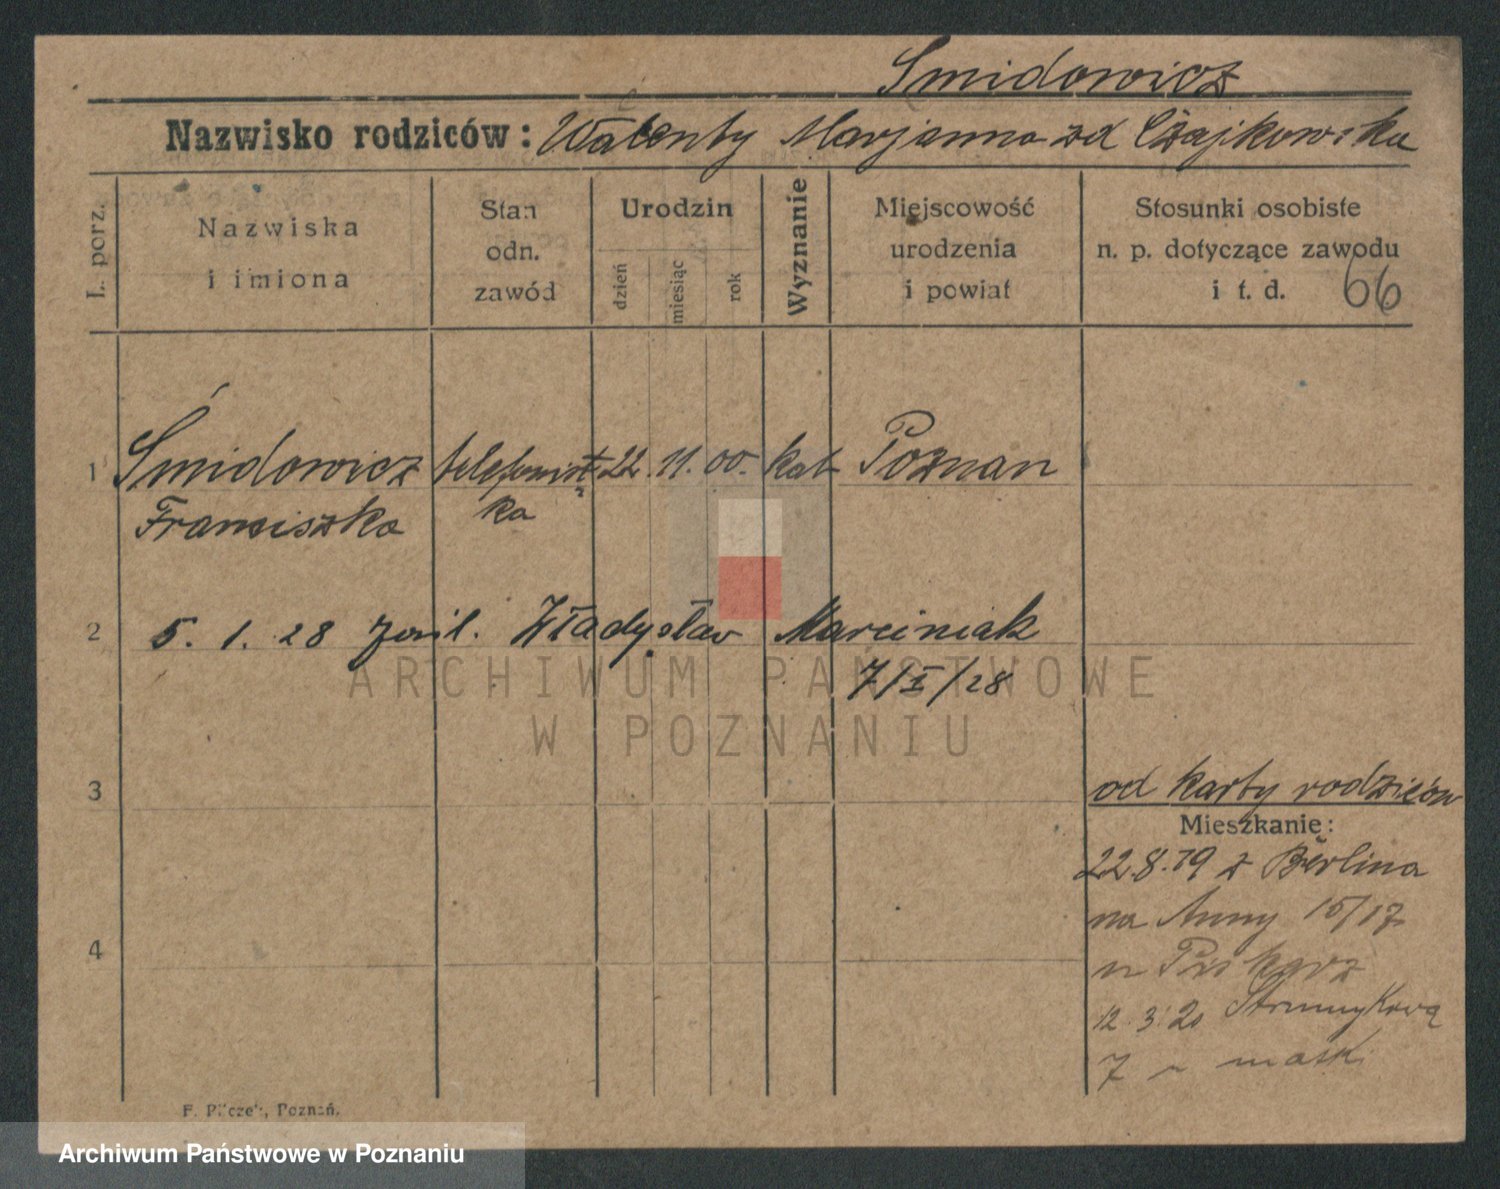 Smidowicz
Nazwisko rodziców: Walenty Marjanna zd Czajkowska
L. porz.
Nazwiska
i imiona
Stan
odn.
zawód
Urodzin
dzień
miesiąc
rok
Wyznanie
Miejscowość
urodzenia
i powiat
Stosunki osobiste
n. p. dotyczące zawodu
i t. d. 66
1 Śmidowicz telefonist 22. 11. 00. kat Poznan
Franciszka ka
2 5. 1. 28 Władysław Marciniak
7/I/28
ARCHIWUM PAŃSTWOWE
W POZNANIU
3
od karty rodziców
Mieszkanie:
22.8.19 z Berlina
na Anny 15/17
4
12.3.20 Strumykową
7
F. Pilczek, Poznań.
Archiwum Państwowe w Poznaniu